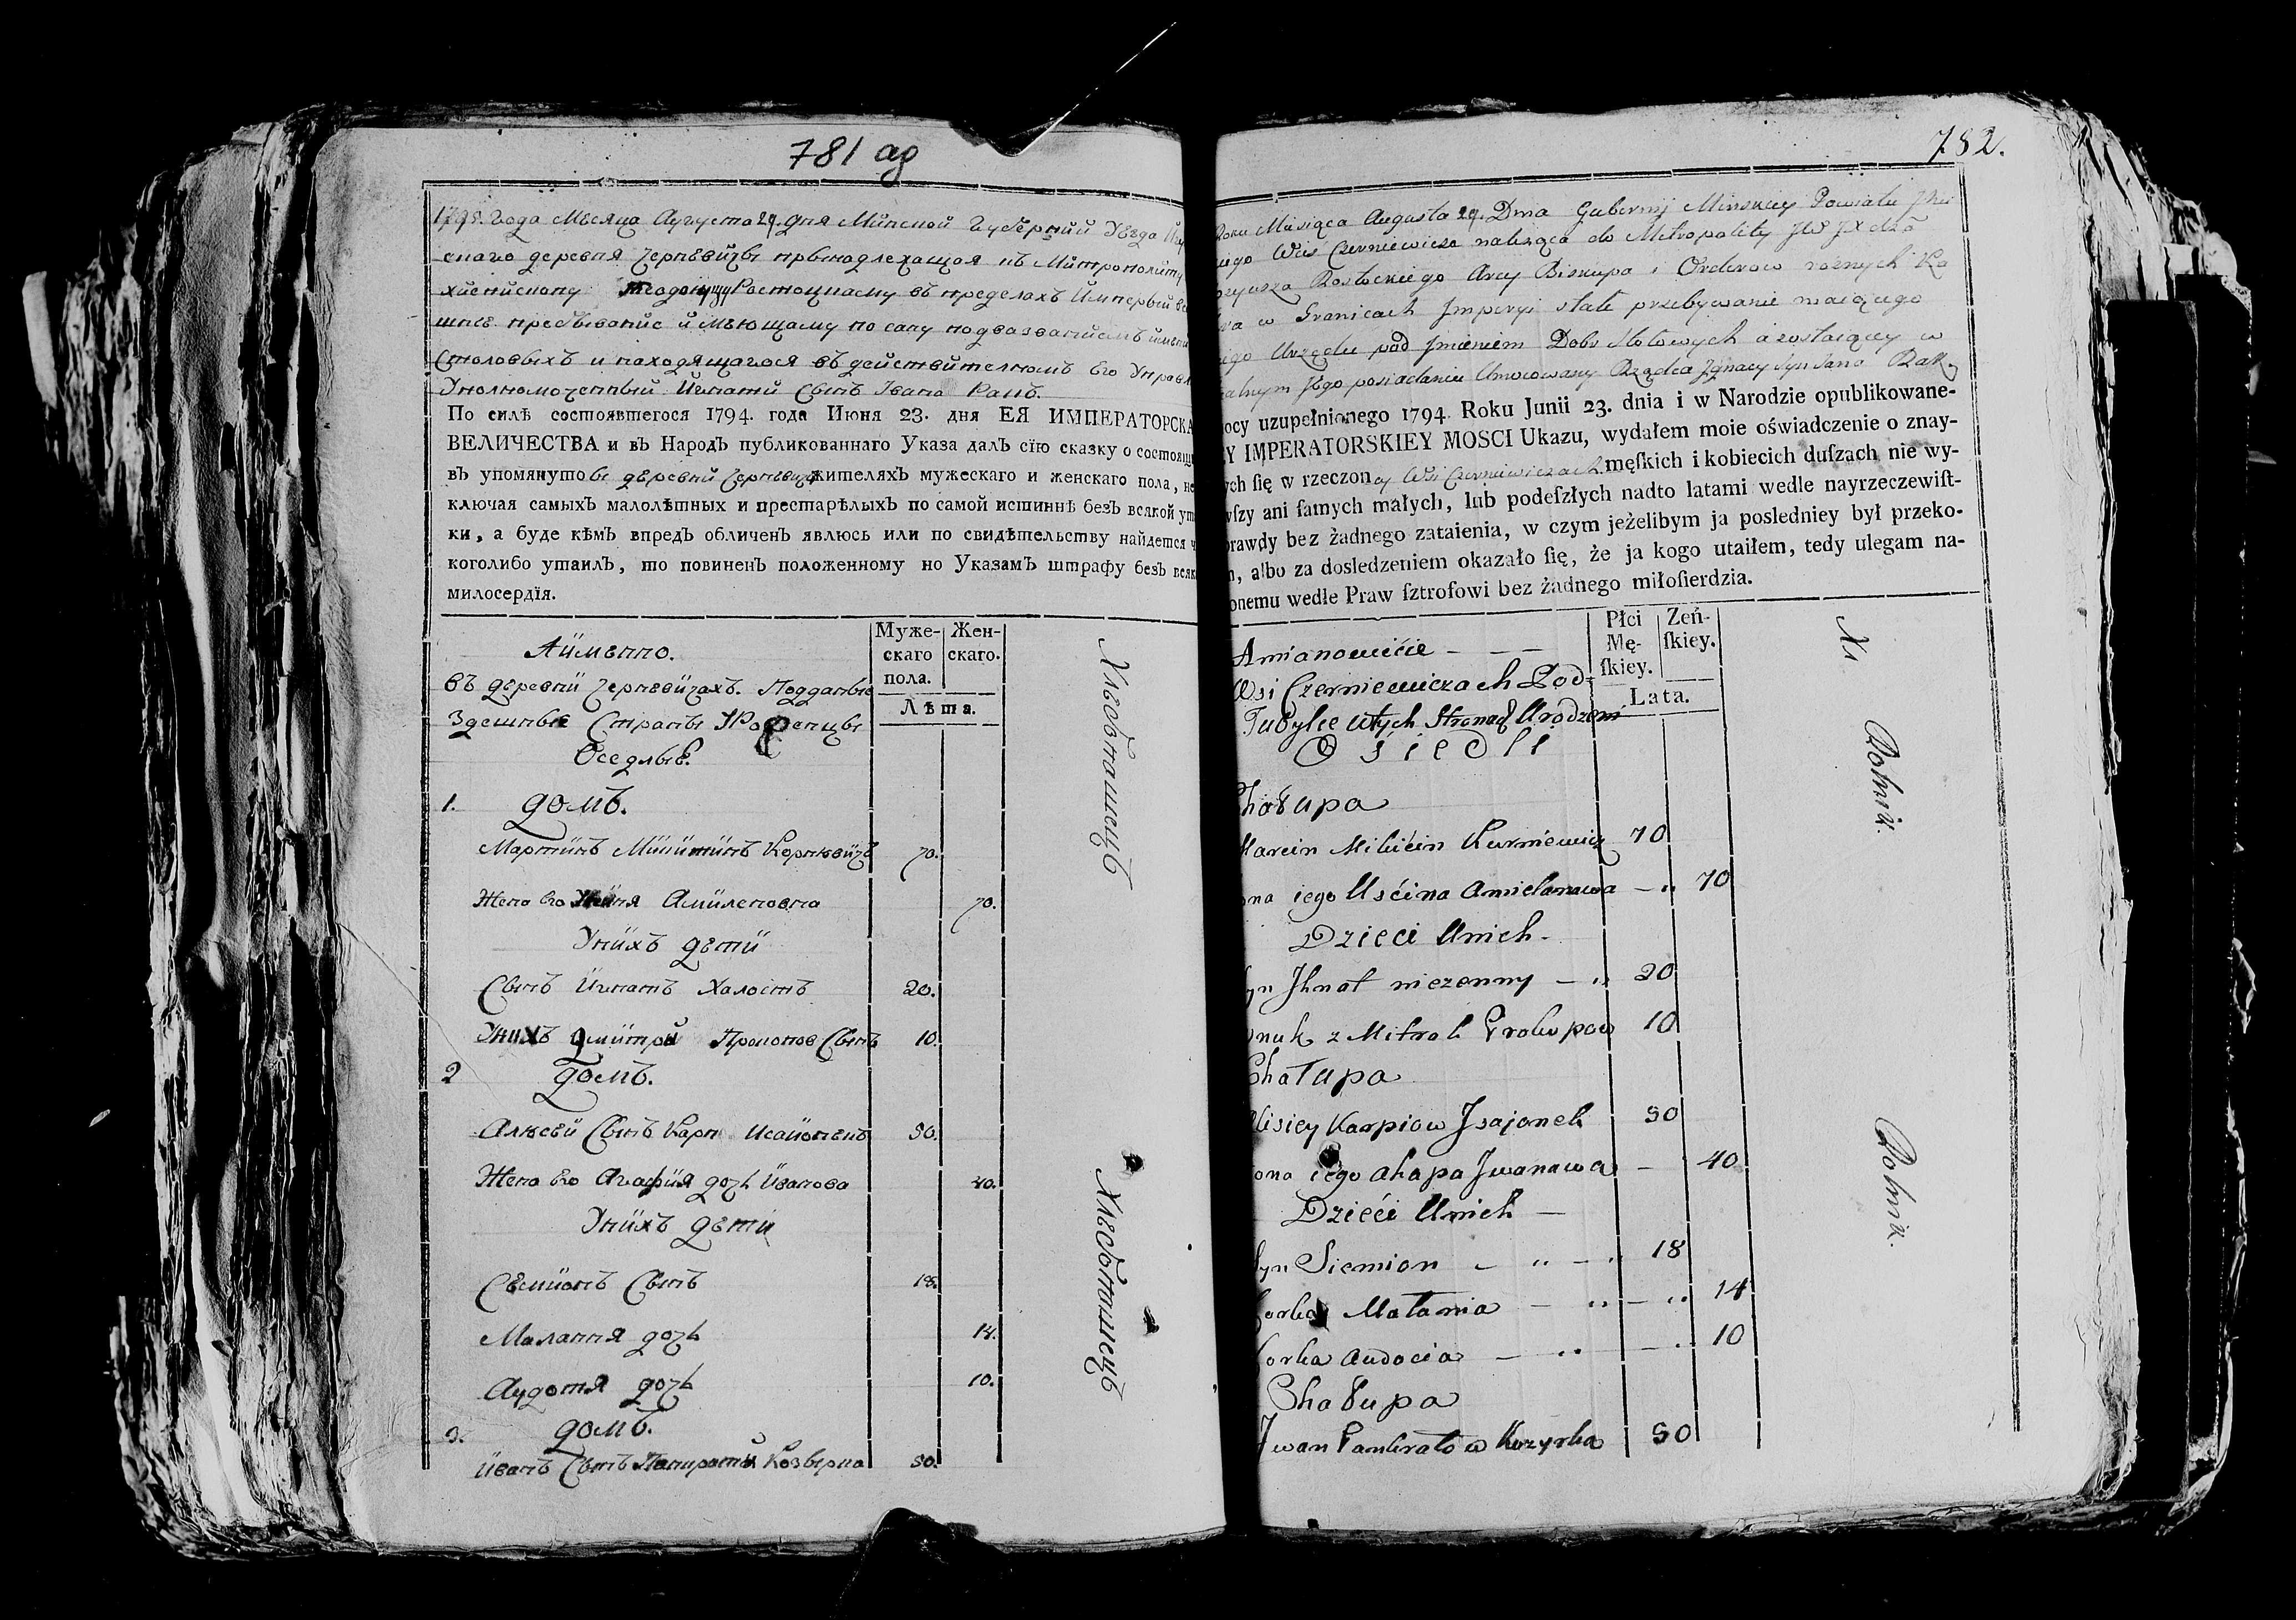 781 ад
1795. года Месяца Августа 29. дня Минской Губерний Уезда
скаго деревня Чернѣвичи принадлежащая къ Митрополиту
Ростоцкому въ пределахъ Империй
пребывание имѣющему по сану подъ названиемъ
Столовыхъ и находящагося въ действителномъ Его
Уполномоченный Игнатий Сынъ Ивана Ракъ.
По силѣ состоявшегося 1794. года Июня 23. дня ЕЯ ИМПЕРАТОРСКА
ВЕЛИЧЕСТВА и въ Народъ публикованнаго Указа далъ сїю сказку о состоящи
въ упомянутой деревнй Чернѣвичи жителяхъ мужескаго и женскаго пола, не
ключая самыхъ малолѣтныхъ и престарѣлыхъ по самой истиннѣ безъ всякой ут
ки, а буде кѣмъ впредъ обличенъ явлюсь или по свидѣтельству найдется ч
коголибо утаилъ, то повиненъ положенному по Указамъ штрафу безъ всяк
милосердїя.
Муже-скаго пола.
Жен-скаго.
Лѣта.
Аймѣнно.
въ деревнй Чернѣвичахъ.Подданые
Здешные Страны
Оседлые.
1. домъ.
Мартинъ Микитинъ Корнѣвичъ 70.
Жена Его Амиляновна 70.
Унихъ дети
Сынъ Игнатъ Халостъ 20.
Унихъ Дмитрий Прокопов Сынъ 10.
2 домъ.
Алксѣй Сынъ Карп Исайонекъ 50.
Жена Его Агафия дочь Иванова 40.
Унихъ дети
Сѣмионъ Сынъ 18.
Малання дочь 14.
Аудотя дочь 10.
3. домъ.
Иванъ Сынъ Панкратий Козырка 50.
Хлебопашецъ
Хлебопашецъ
782.
Roku Miesiąca Augusta 29. Dnia Gubernij Minskiey Powiatu
iego Wieś Czerniewicze należąca do Metropolity JW JX
Rostockiego Arcy Biskupa i Orderow roznych Ka
ra w Granicach Imperyi stałe przebywanie maiącego
ego Urzędu pod Jmieniem Dobr Stołowych a zostaiącey w
alnym Jego posiadaniu Umocowany Rządca Jgnacy Syn Jana Rak
ocy uzupełnionego 1794. Roku Junii 23. dnia i w Narodzie opublikowane-
EY IMPERATORSKIEY MOSCI Ukazu, wydałem moie oświadczenie o znay-
ych ſię w rzeczoney Wsi Czerniewiczach męſkich i kobiecich duſzach nie wy-
wſzy ani ſamych małych, lub podeſzłych nadto latami wedle nayrzeczewiſt-
prawdy bez żadnego zataienia, w czym jeżelibym ja posledniey był przeko-
n, albo za dosledzeniem okazało ſię, że ja kogo utaiłem, tedy ulegam na-
onemu wedle Praw ſztrofowi bez żadnego miłoſierdzia.
Płci Mę-ſkiey.
Zeń-ſkiey.
Lata.
Amianowićie
Wsi Czerniewiczach Pod-
Tubylce w tych Stronach Urodzeni
Osiedli
Chałupa
Marcin Mikicin Kurniewicz 70
ona iego Uscina Amielanawa 70
Dzieci Unich
yn Jhnat niezenny 20
nuk z Mitrak Prakopaw 10
Chałupa
lisiey Karpiow Jsajonek 50
ona iego Ahapa Jwanawa 40
Dzieći Unich
Syn Siemion 18
orka Małania 14
orka Audocia 10
Chałupa
Jwan Pankratow Kozyrka 50
Rolnik.
Rolnik.